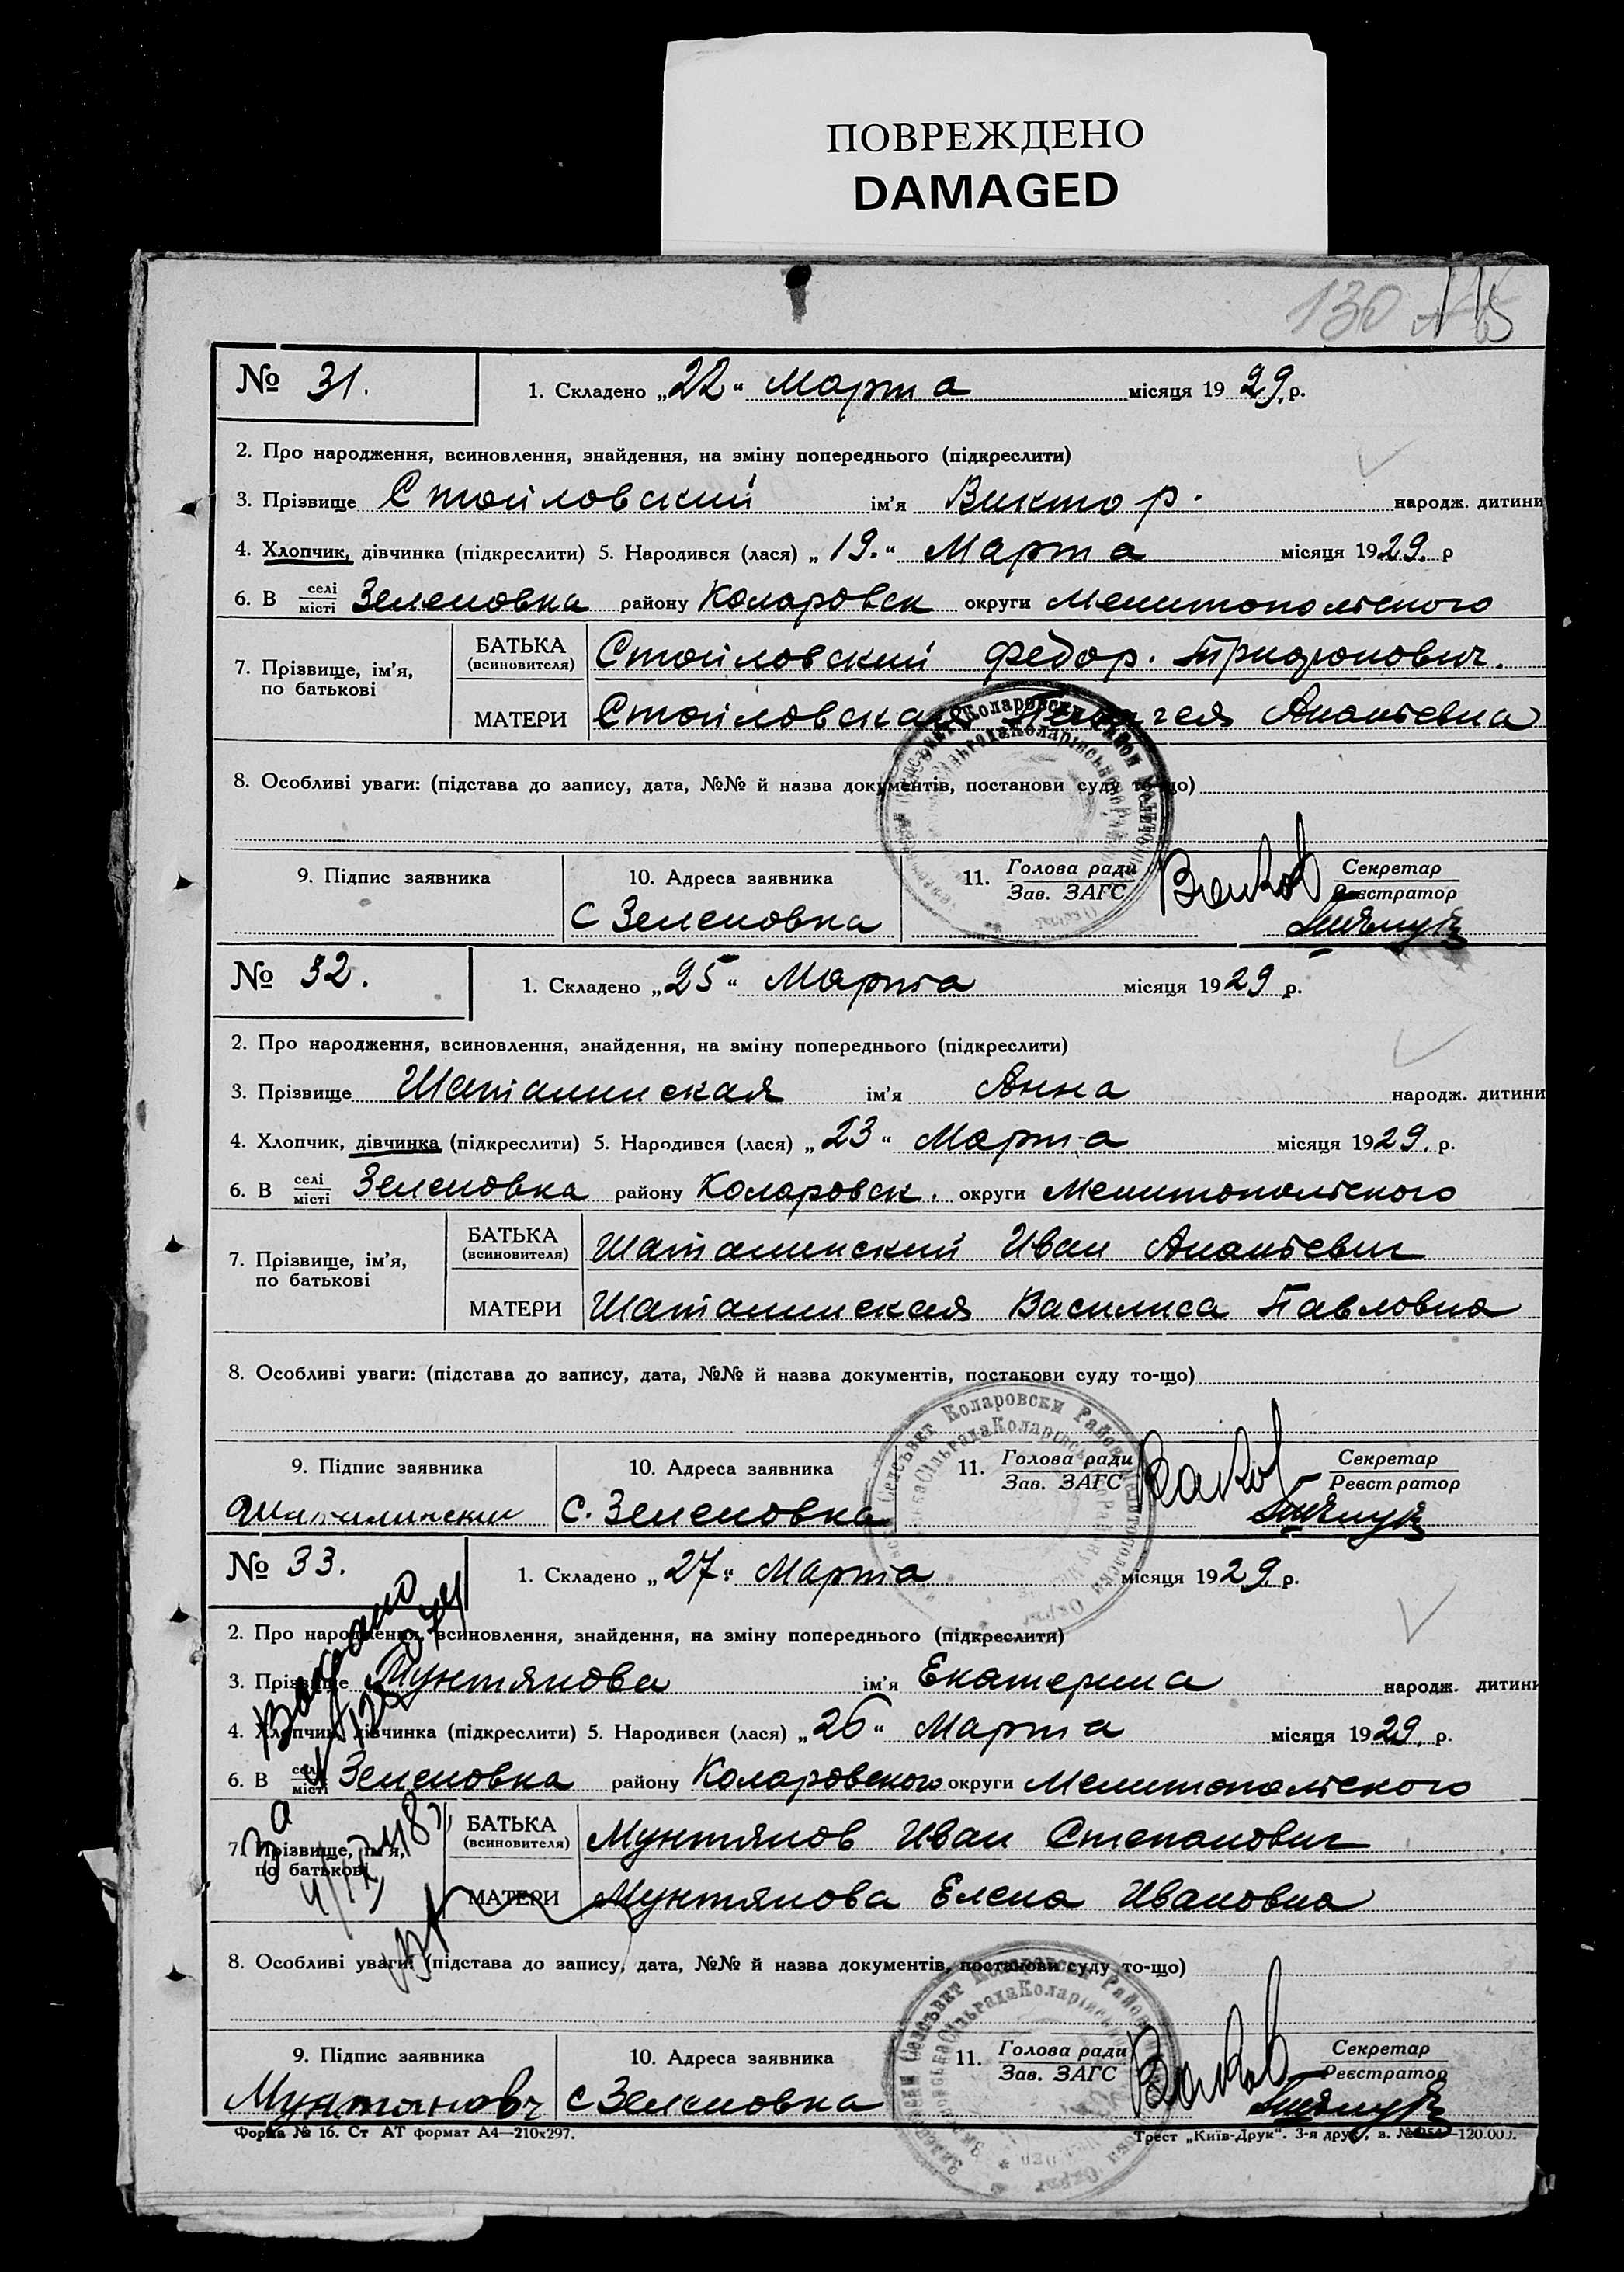 ПОВРЕЖДЕНО
DAMAGED
130
№ 31. 1. Складено „22“ Марта місяця 1929 р.
2. Про народження, всиновлення, знайдення, на зміну попереднього (підкреслити)
3. Прізвище Стойловский ім’я Виктор. народж. дитини
4. Хлопчик, дівчинка (підкреслити) 5. Народився (лася) „19.“ Марта місяця 1929. р
6. В селі/місті Зеленовка району Коларовск округи Мелитопольского
7. Прізвище, ім’я, по батькові
БАТЬКА (всиновителя) Стойловский Федор. Трифонович.
МАТЕРИ Стойловская Пелагея Ананьевна
8. Особливі уваги: (підстава до запису, дата, №№ й назва документів, постанови суду то-що)
9. Підпис заявника 10. Адреса заявника 11. Голова ради Секретар
Зав. ЗАГС Реєстратор
С Зеленовка
№ 32. 1. Складено „25“ Марта місяця 1929 р.
2. Про народження, всиновлення, знайдення, на зміну попереднього (підкреслити)
3. Прізвище Шаталинская ім’я Анна народж. дитини
4. Хлопчик, дівчинка (підкреслити) 5. Народився (лася) „23“ Марта місяця 1929. р.
6. В селі/місті Зеленовка району Коларовск. округи Мелитопольского
7. Прізвище, ім’я, по батькові
БАТЬКА (всиновителя) Шаталинский Иван Ананьевич
МАТЕРИ Шаталинская Василиса Павловна
8. Особливі уваги: (підстава до запису, дата, №№ й назва документів, постанови суду то-що)
Коларовски Район
9. Підпис заявника 10. Адреса заявника 11. Голова ради Секретар
Зав. ЗАГС Реєстратор
Шаталински С. Зеленовка
№ 33. 1. Складено „27“ Марта місяця 1929 р.
2. Про народження, всиновлення, знайдення, на зміну попереднього (підкреслити)
3. Прізвище Мунтянова ім’я Екатерина народж. дитини
4. Хлопчик, дівчинка (підкреслити) 5. Народився (лася) „26“ Марта місяця 1929. р.
6. В селі/місті Зеленовка району Коларовского округи Мелитопольского
7. Прізвище, ім’я, по батькові
БАТЬКА (всиновителя) Мунтянов Иван Степанович
МАТЕРИ Мунтянова Елена Ивановна
8. Особливі уваги: (підстава до запису, дата, №№ й назва документів, постанови суду то-що)
9. Підпис заявника 10. Адреса заявника 11. Голова ради Секретар
Зав. ЗАГС Реєстратор
С Зеленовка
Форма № 16. Ст АТ формат А4—210х297. Трест „Київ-Друк“. 3-я друк,